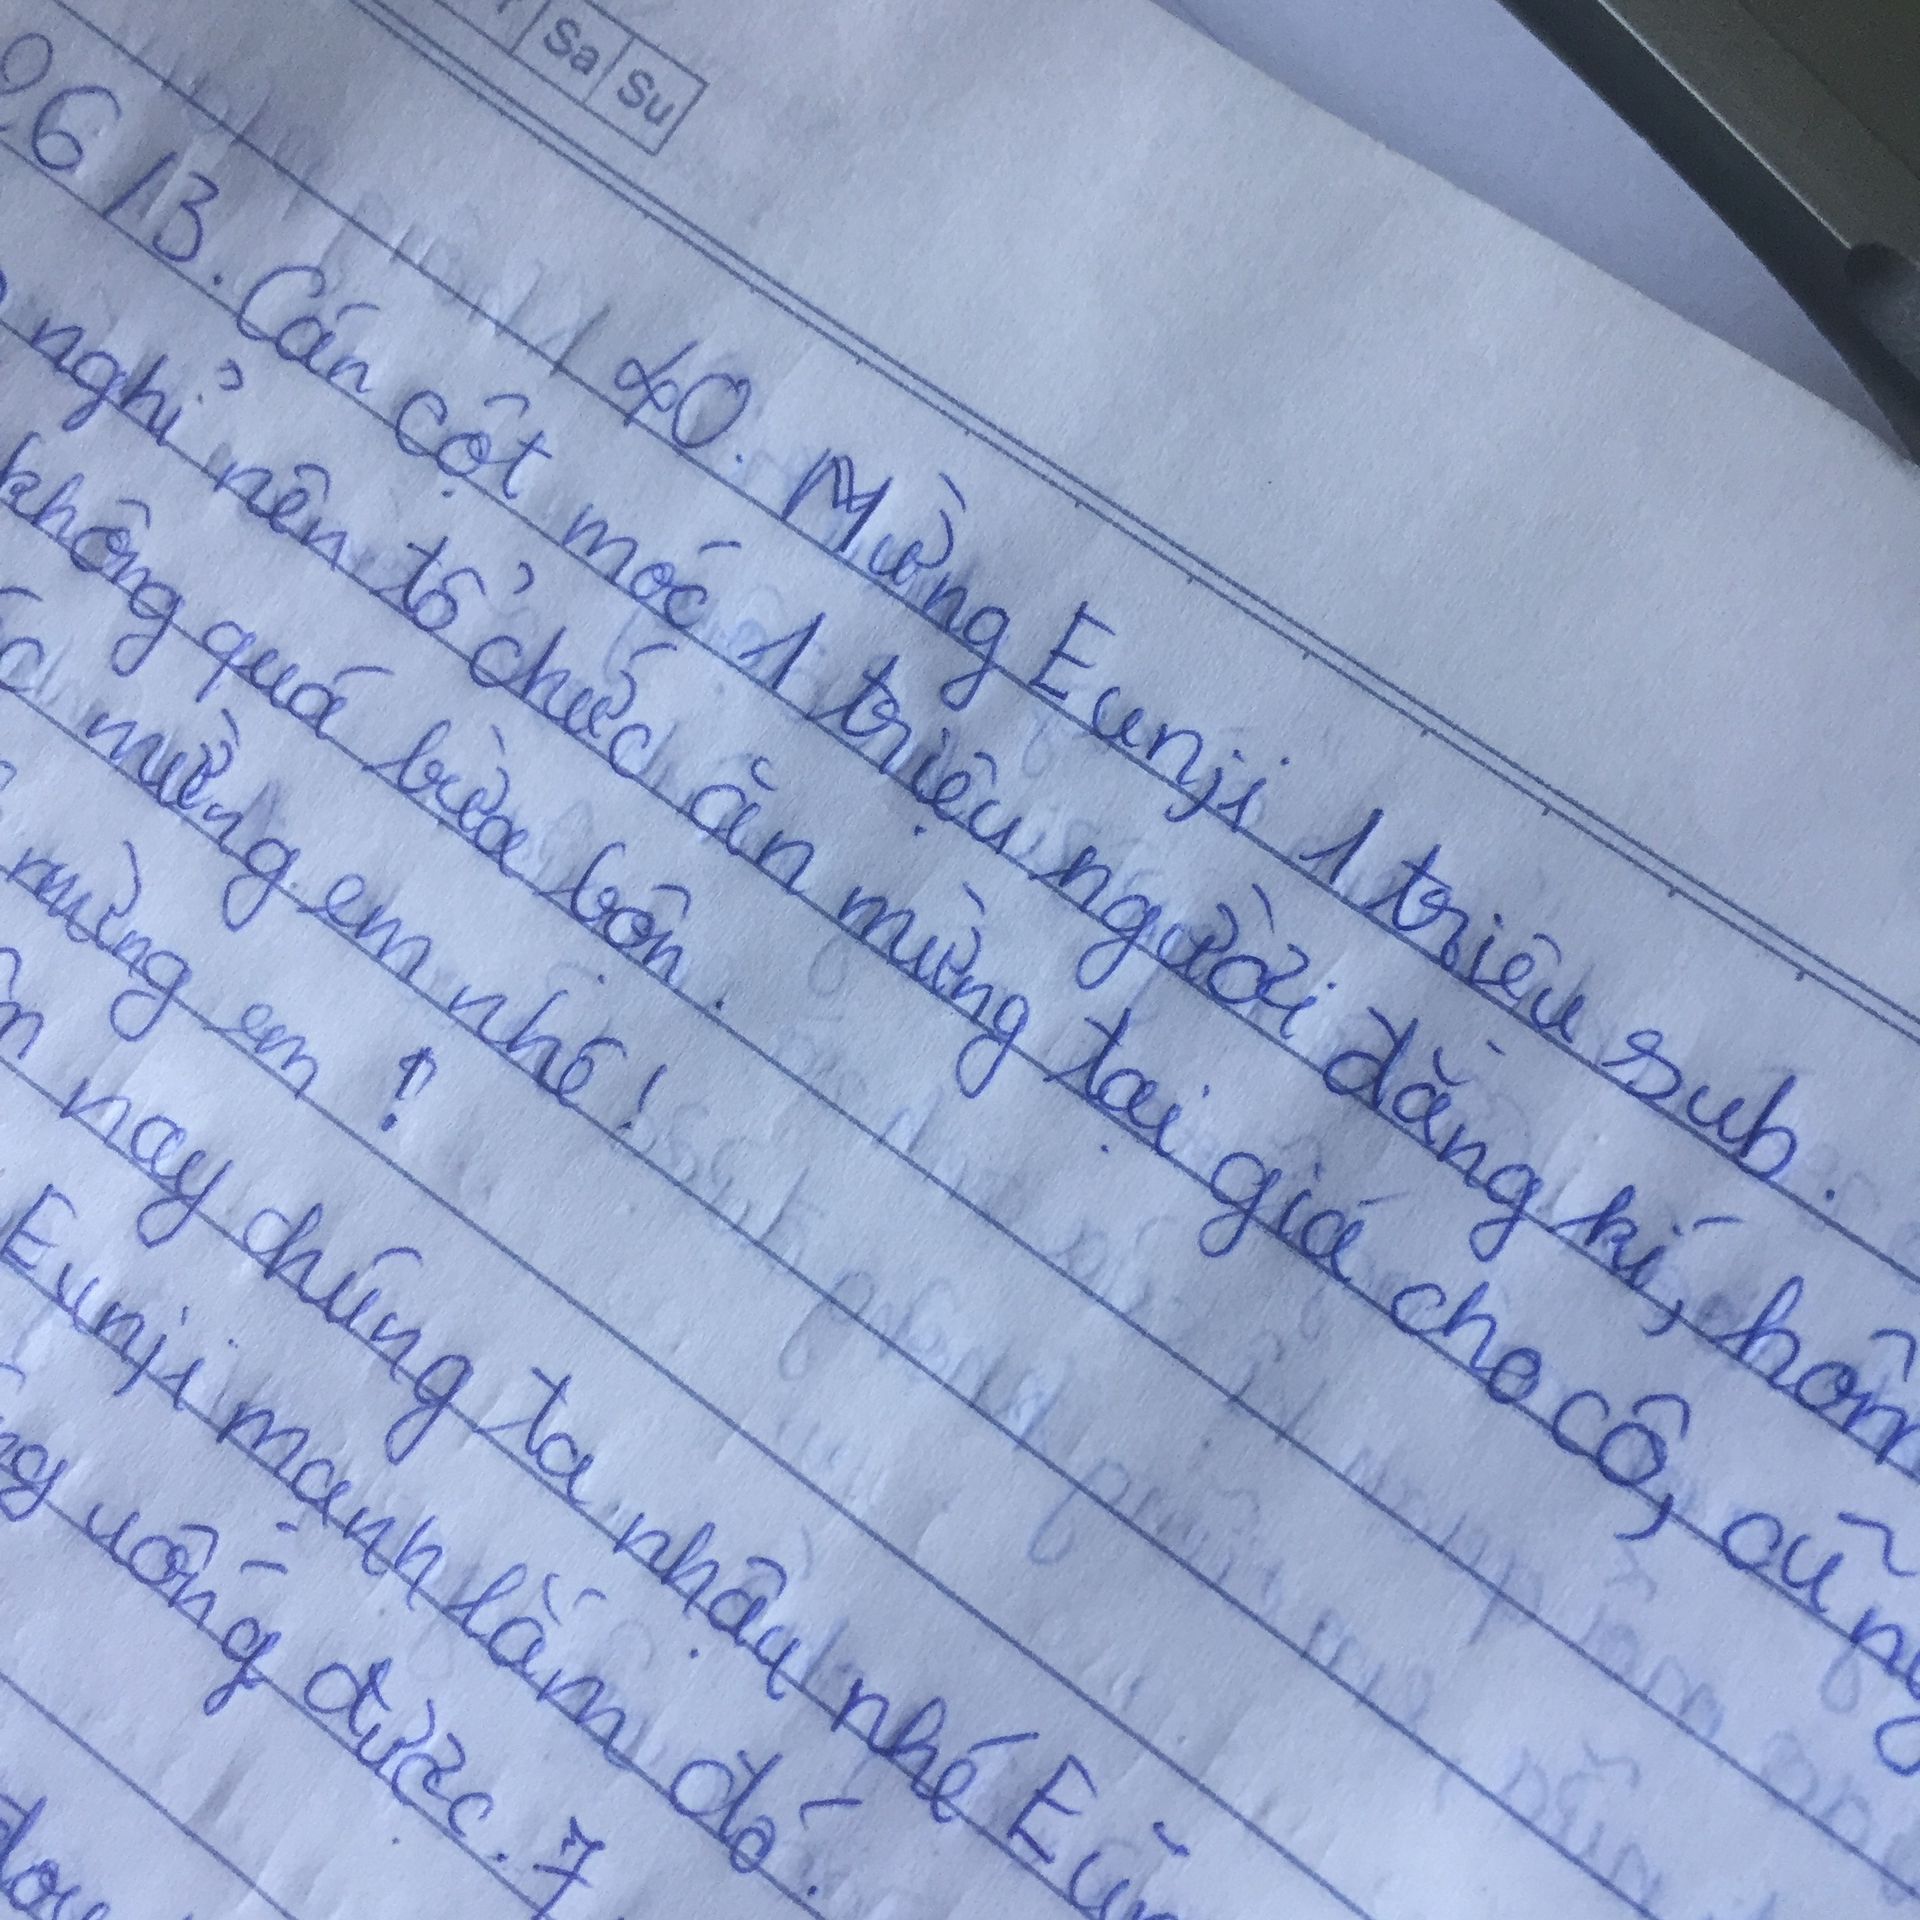 Sa Su
40. Mừng Eunji 1 triệu sub.
26/3. Cán cột mốc 1 triệu người đăng kí, hôm
nghỉ nên tổ chức ăn mừng tại giá cho cô, cũng
không quá bừa bộn.
mừng em nhé!
mừng em!
nay chúng ta nhậu nhé
Eunji mạnh lắm đó.
uống được. 7